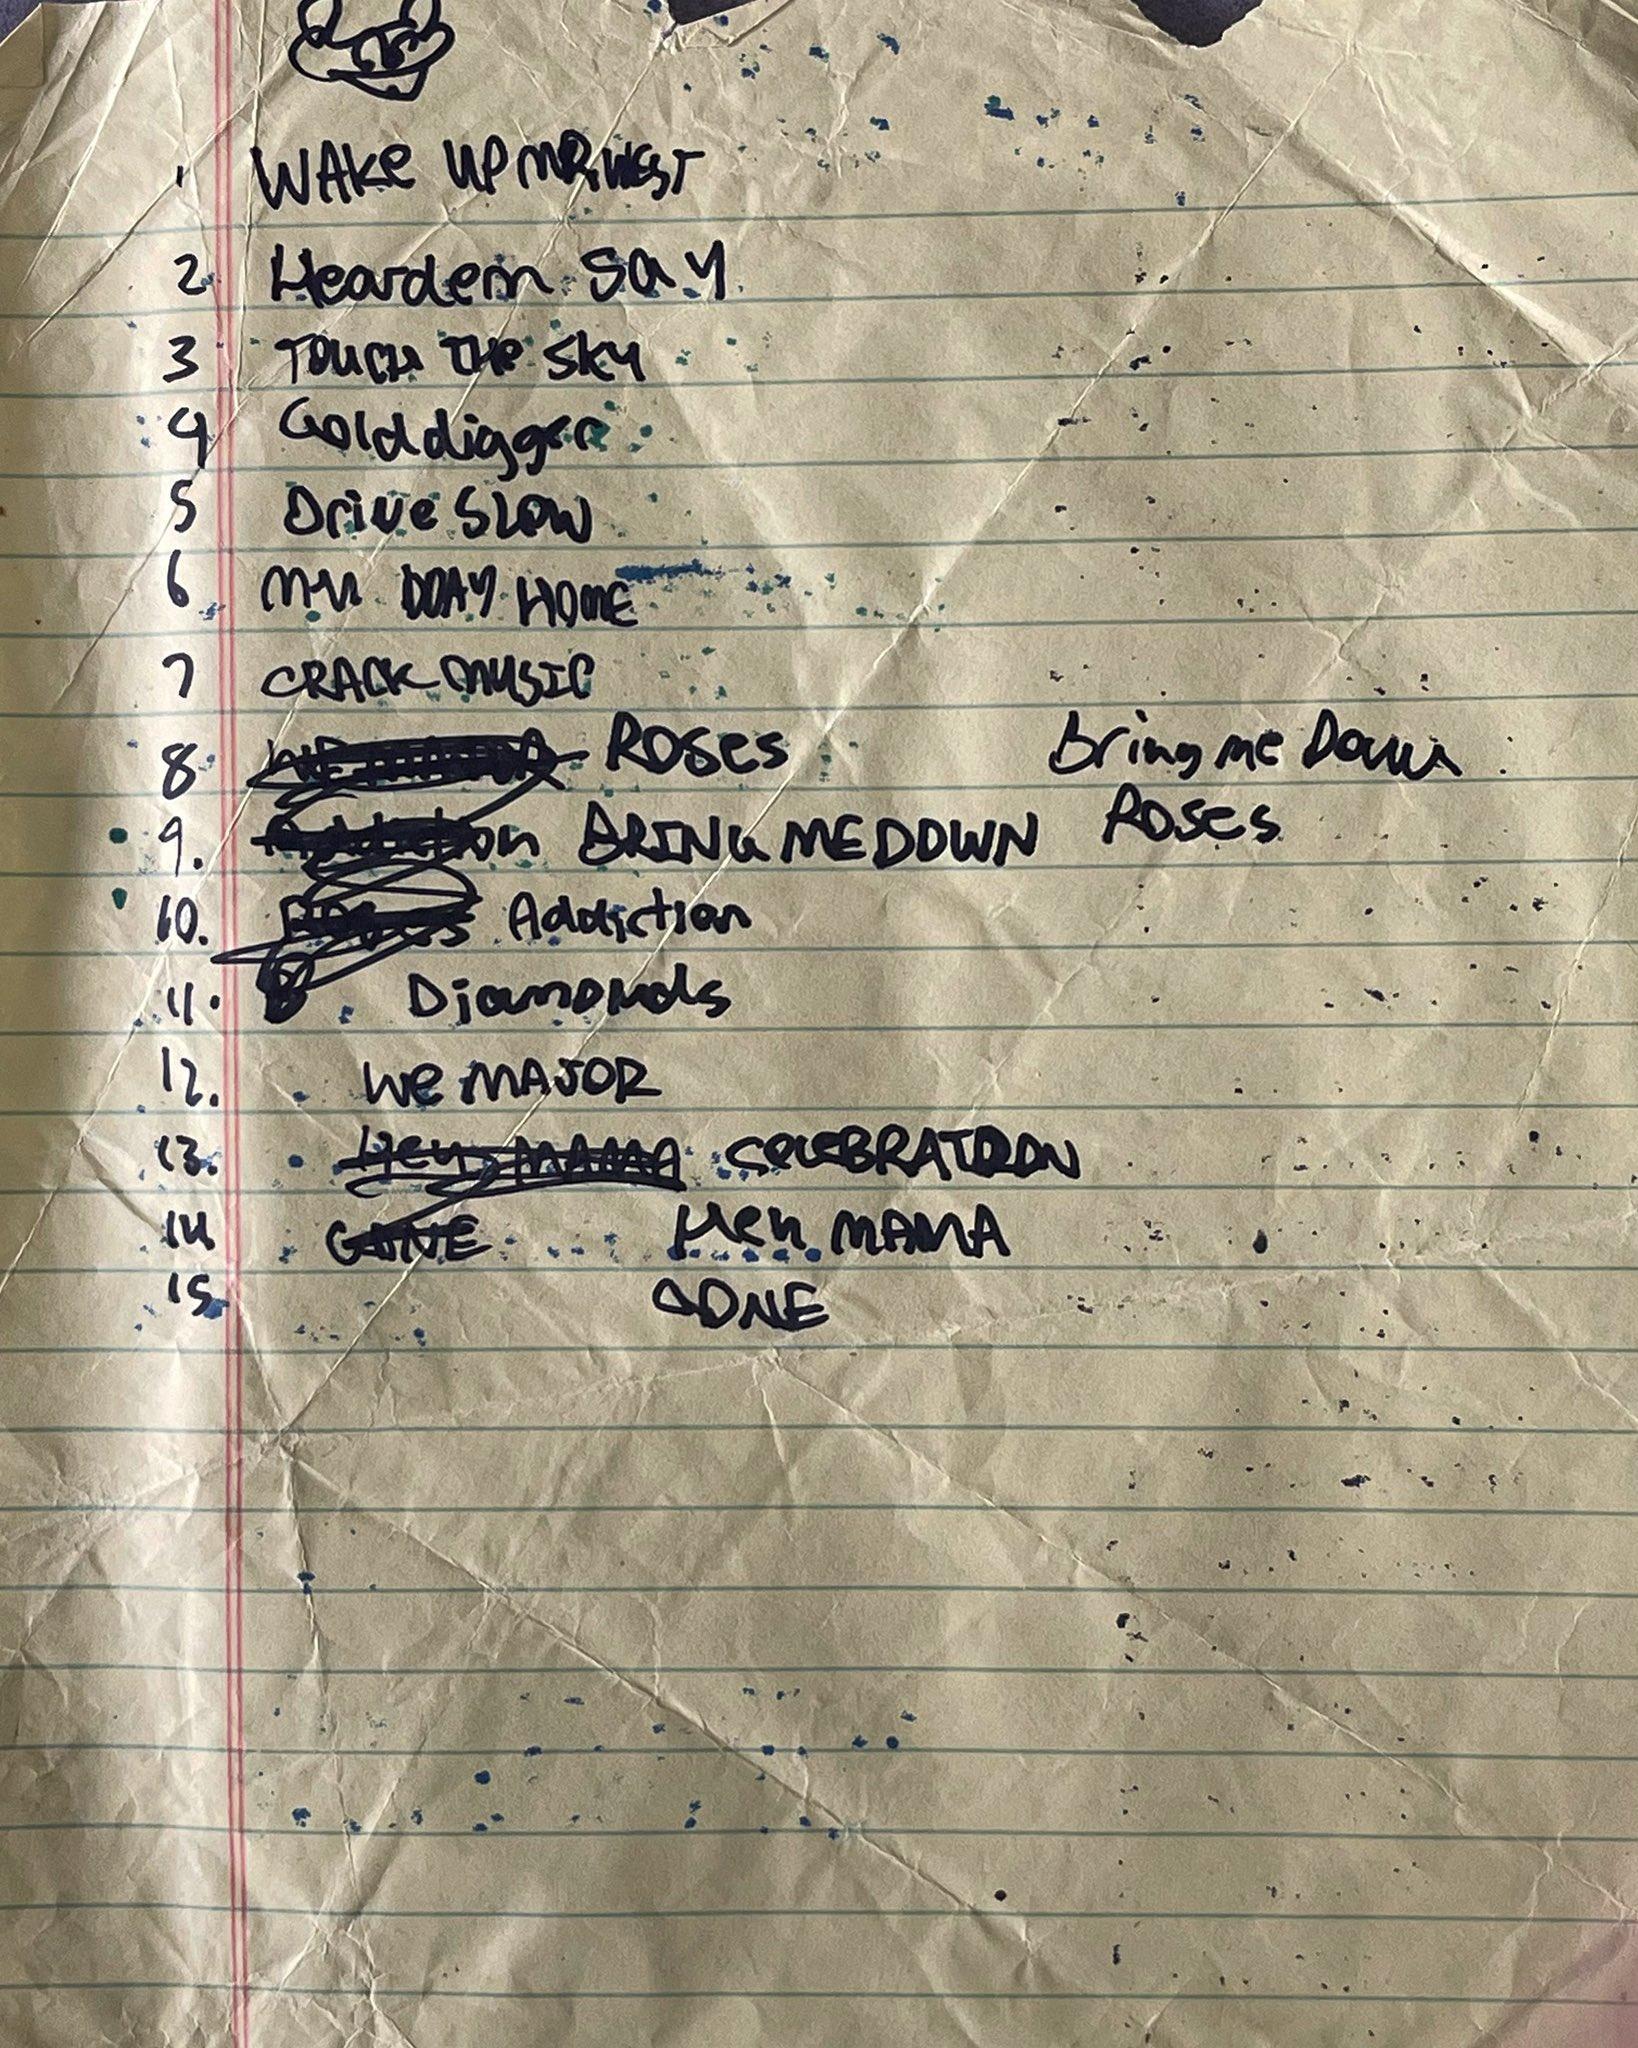 1 WAKE UP MR. WEST
2 Heardem Say
3 TOUCH THE SKY
4 Golddigger
5 Drive SLOW
6 DDAY HOME
7 CRACK MUSIC
8 ROSES Bring me Down
9. BRING ME DOWN ROSES
10. Addiction
11. Diamonds
12. We MAJOR
13. Hey MAMA CELEBRATION
14 GONE Hey MAMA
15 GONE